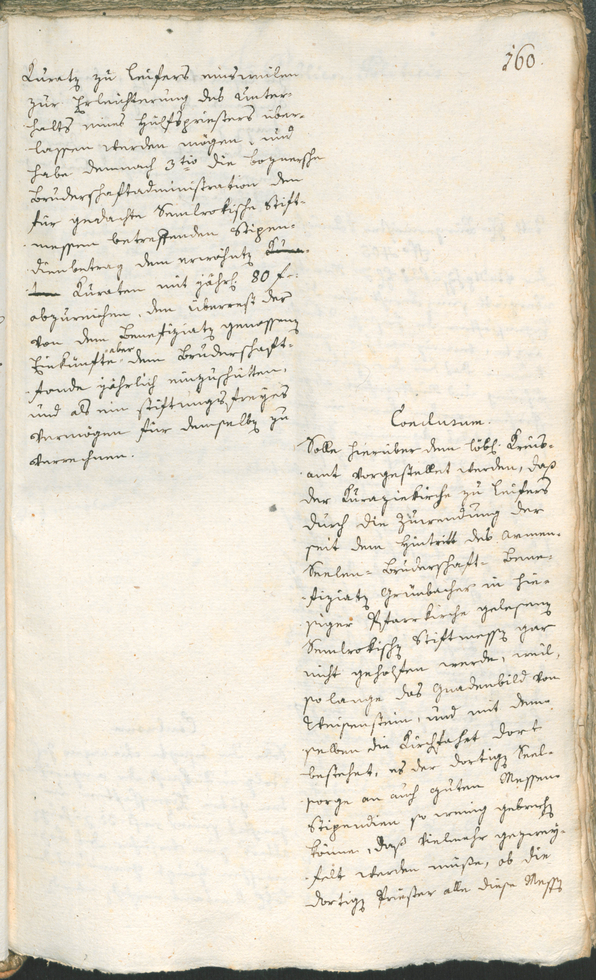 160.
Kuratz zu Leifers einsweilen
zur Erleichterung des Unter-
halts eines Hülfspriesters über-
lassen werden mögen, und
habe demnach 3tio die boznersche
Bruderschaftadministration den
für gedachte Semlrokische Stift-
messen betreffenden Stipen-
dienbetrag dem erwähnten
Kuraten mit jährl. 80 f.
abzureichen, den Überrest der
von dem Benefiziaten genossenen
Einkünfte aber dem Bruderschaft-
fonde jährlich einzuschütten,
und als ein stiftungsfreyes
Vermögen für demselben zu
verrechnen.
Conclusum.
Solle hierüber dem löbl. Kreis-
amt vorgestellet werden, daß
der Kuraziekirche zu Leifers
durch die Zuwendung der
seit dem Hintritt des Armen-
Seelen-Bruderschaft-Bene-
fiziaten Grünbacher in hie-
siger Pfarrkirche gelesenen
Semlrokischen Stiftmessen gar
nicht geholfen werde, weil,
so lange das Gnadenbild von
Weisenstein, und mit dem-
selben die Kirchfahrt dort
bestehet, es der dortigen Seel-
sorge an auch guten Messen-
Stipendien so wenig gebrechen
könne, daß vielmehr gezwey-
felt werden müße, ob die
dortigen Priester alle diese Messen